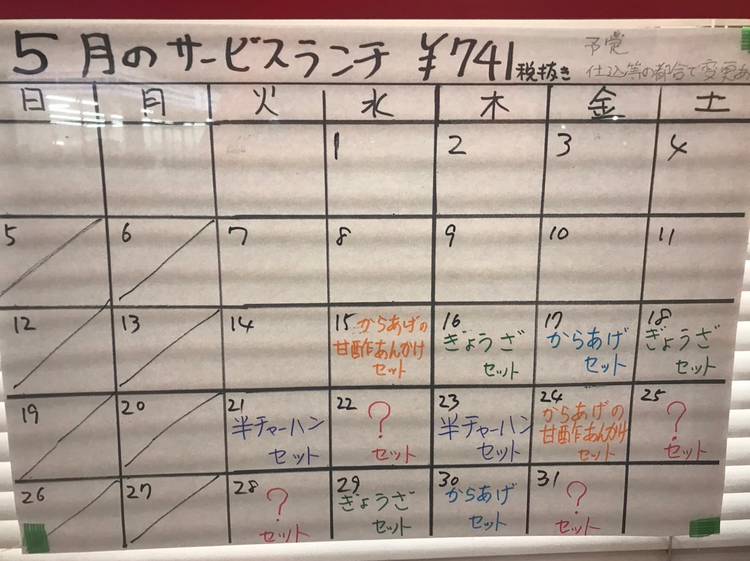 5月のサービスランチ ¥741税抜き
予定
仕込等の都合で変更あ
日 月 火 水 木 金 土
1 2 3 4
5 6 7 8 9 10 11
12 13 14
15 からあげの
甘酢あんかけ
セット
16
ぎょうざ
セット
17
からあげ
セット
18
ぎょうざ
セット
19 20
21
半チャーハン
セット
22
?
セット
23
半チャーハン
セット
24
からあげの
甘酢あんかけ
セット
25
?
セット
26 27
28
?
セット
29
ぎょうざ
セット
30
からあげ
セット
31
?
セット